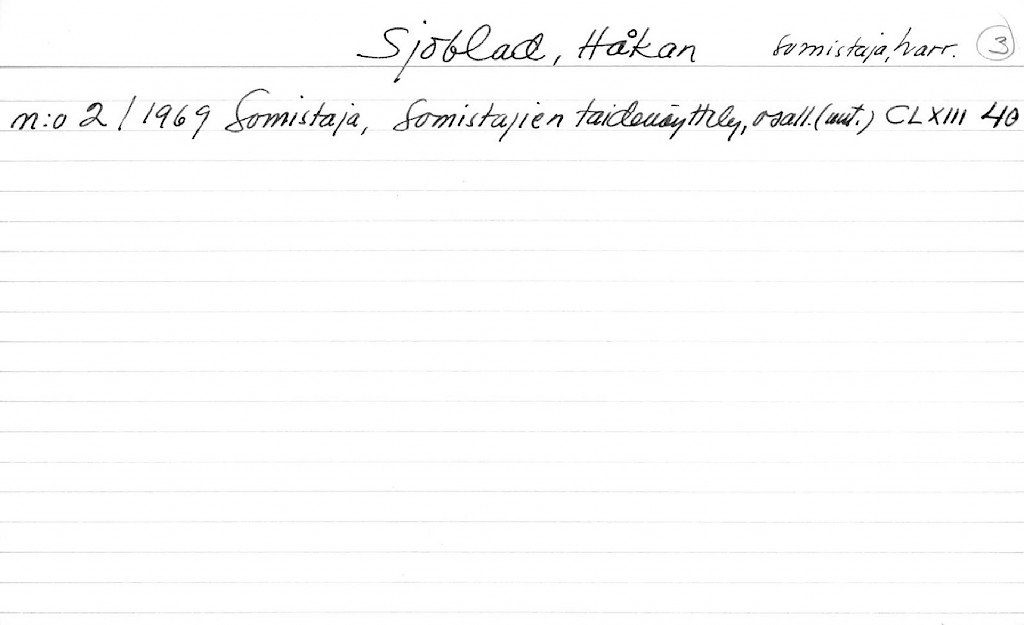 Sjöblad, Håkan somistaja, harr. 3
n:o 2/1969 Somistaja, Somistajien taidenäyttely, osall. (uut.) CLXIII 40